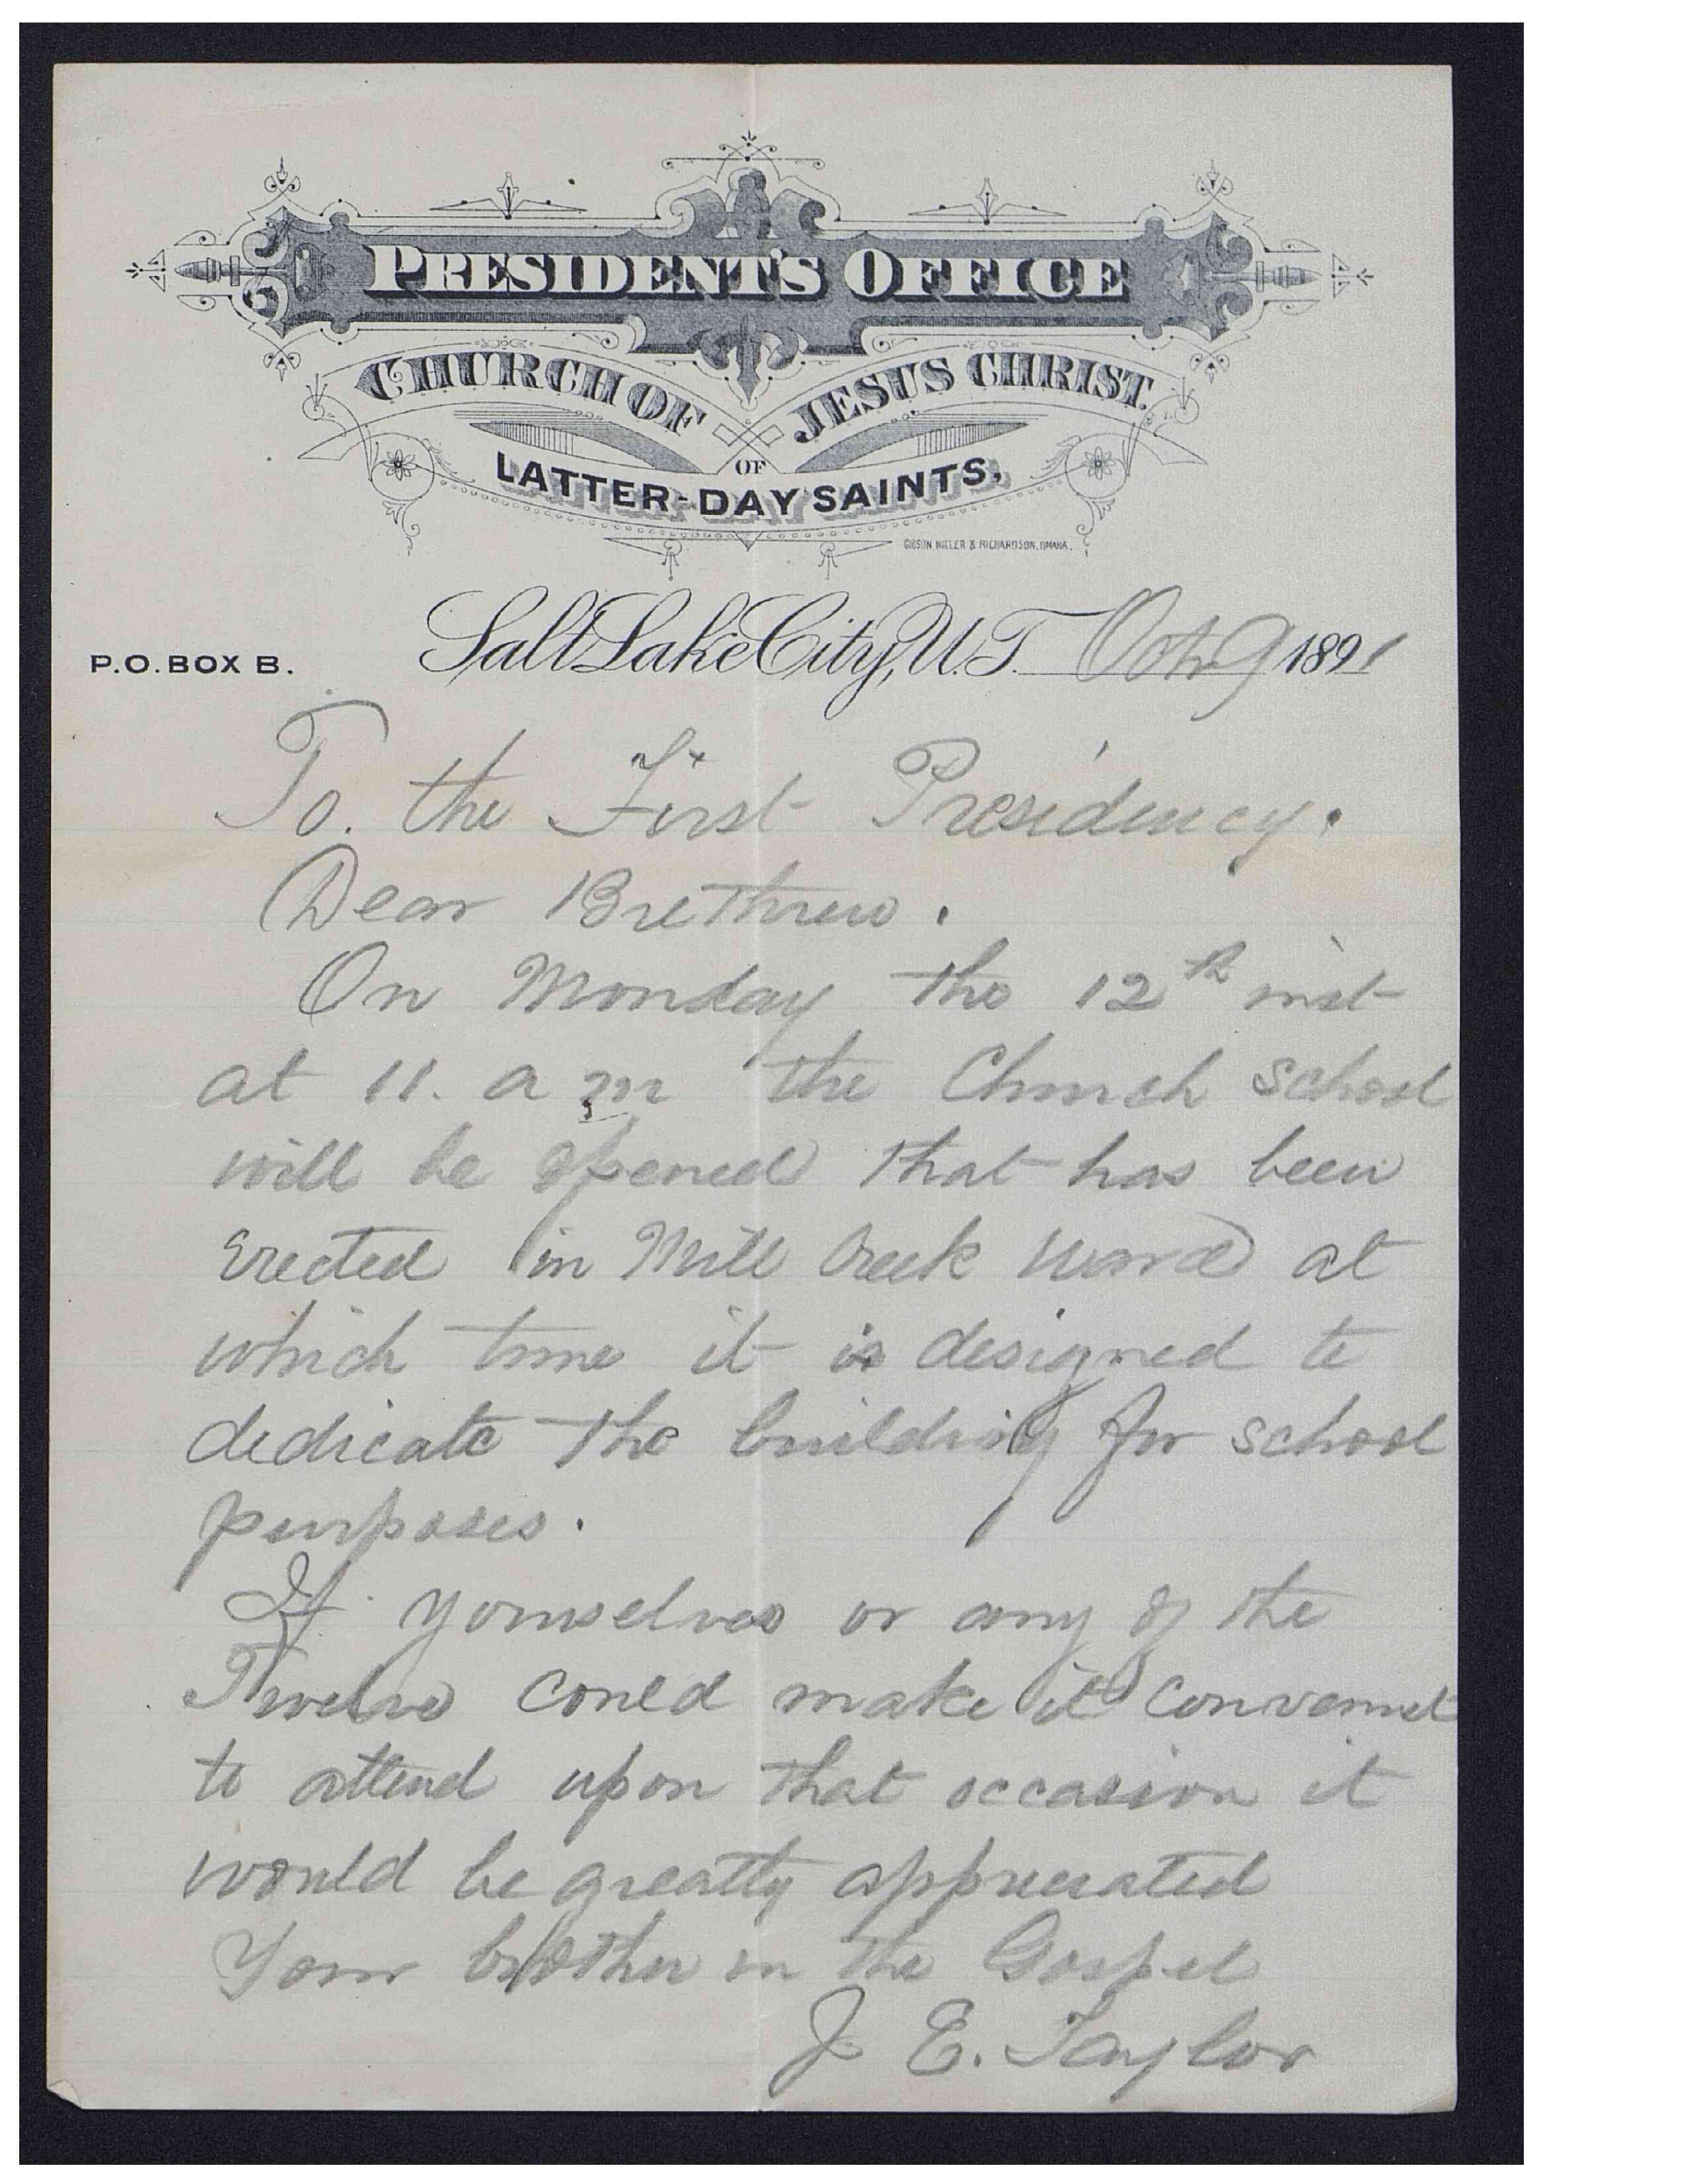 PRESIDENT'S OFFICE
CHURCH OF JESUS CHRIST
OF
LATTER-DAY SAINTS.
GIBSON MILLER & RICHARDSON, OMAHA.
P.O. BOX B. Salt Lake City, U.T. Oct 9 1891
To. the First Presidency.
Dear Brethren.
On Monday the 12th inst
at 11. a m the Church school
will be opened that has been
Erected in Mill Creek Ward at
which time it is designed to
dedicate the building for school
purposes.
If yourselves or any of the
Twelve could make it convenient
to attend upon that occasion it
would be greatly appreciated
Your brother in the Gospel
J E. Taylor